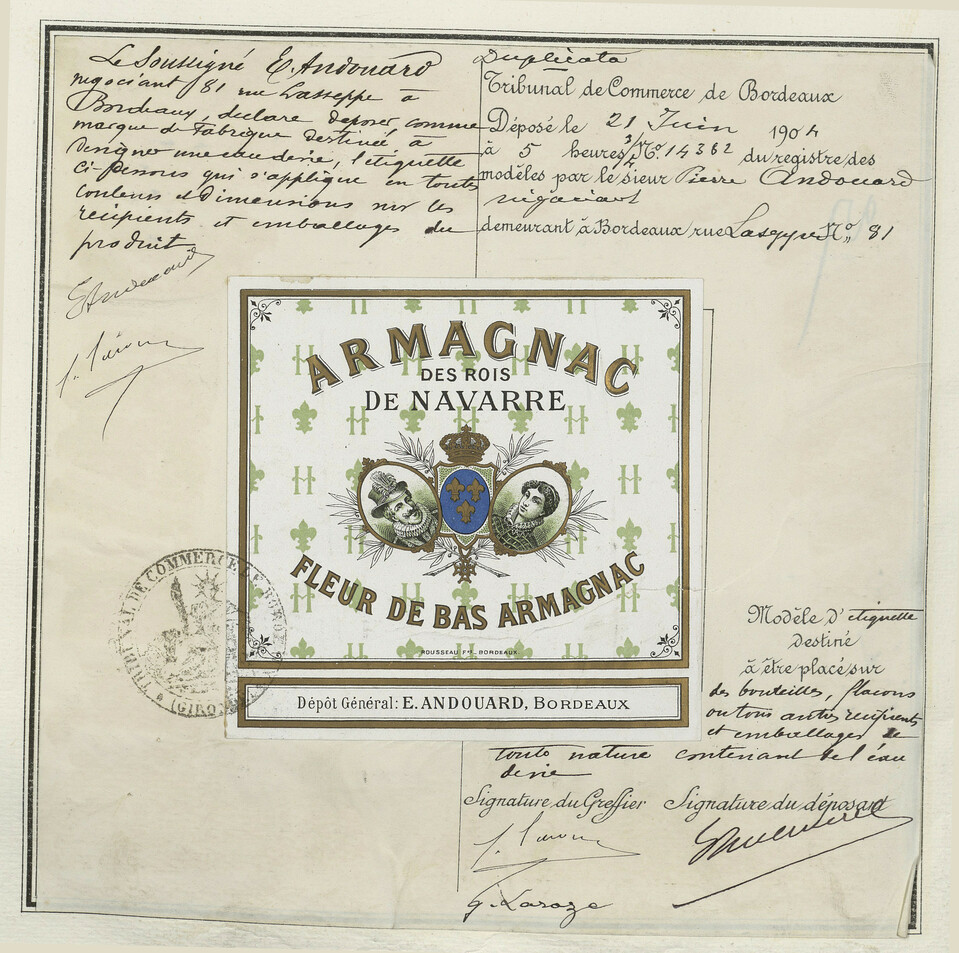 Le Soussigné E. Andouard
négociant 81 rue Lasseppe à
Bordeaux, déclare déposer, comme
marque de Fabrique destinée à
désigner une eau de vie, l'étiquette
ci-dessous qui s'applique en toutes
couleurs et Dimensions sur les
récipients et emballages du
produit
E Andouard
Duplicata
Tribunal de Commerce de Bordeaux
Déposé le 21 Juin 1904
à 5 heures 3/4 No. 14362 du registre des
modèles par le sieur Pierre Andouard
négociant
demeurant à Bordeaux rue No 81
ARMAGNAC
DES ROIS
DE NAVARRE
FLEUR DE BAS ARMAGNAC
ROUSSEAU Fres. BORDEAUX
Dépôt Général: E. ANDOUARD, BORDEAUX
TRIBUNAL DE COMMERCE DE BORDEAUX
(GIRONDE)
Modèle d'étiquette
destiné
à être placé sur
des bouteilles, flacons
ou tous autres récipients
et emballages de
toute nature contenant de l'eau
de vie
Signature du Greffier Signature du déposant